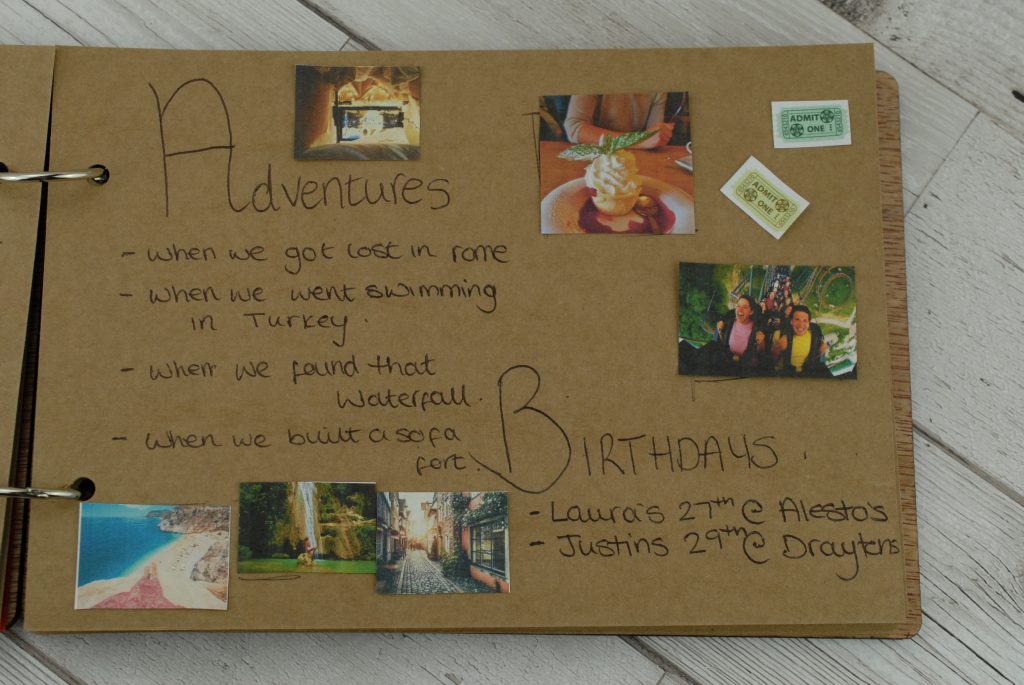 Adventures
- when we got lost in rome
- when we went swimming
in Turkey.
- when we found that
Waterfall.
- when we built a sofa
fort.
ADMIT
ONE
ADMIT
ONE
BIRTHDAYS.
- Laura's 27th @ Alesto's
- Justins 29th @ Draytens